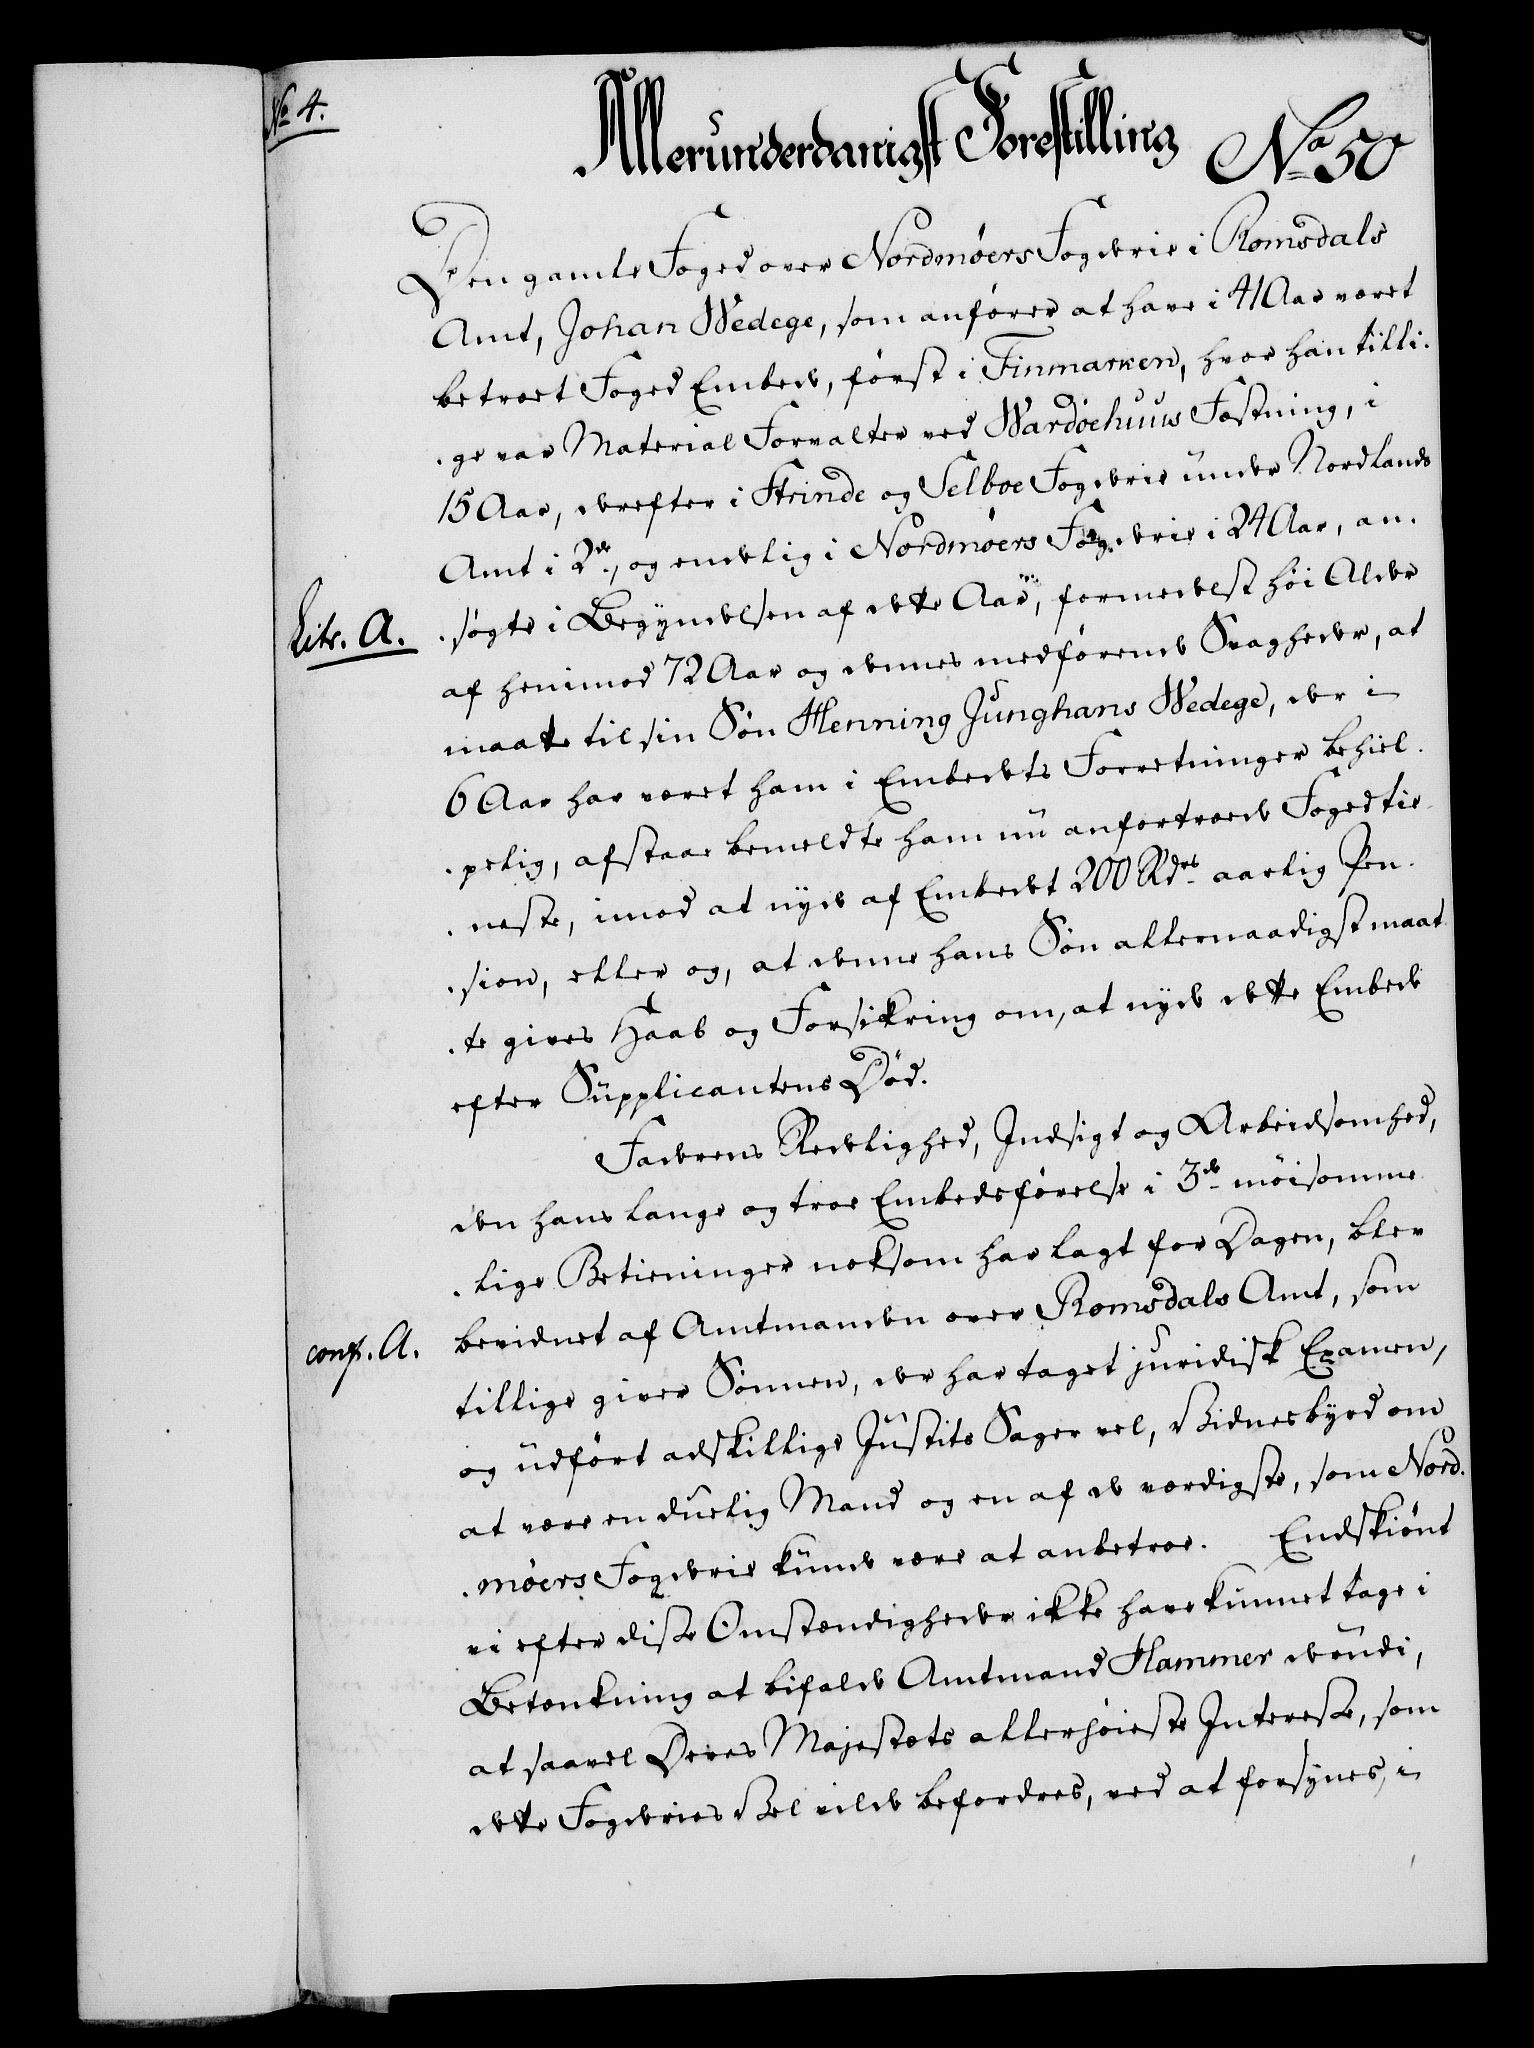 No 4.
Allerunderdanigst Forestilling No 50
Den gamle Foged over Nordmøers Fogderie i Romsdals
Amt, Johan Wedege, som anfører at have i 41 Aar været
betroet Foged Embede, først i Finmarken, hvor han tilli-
-ge var Material Forvalter ved Wardøehuus Fæstning, i
15 Aar, derefter i Strinde og Selboe Fogderie under Nordlands
Amt i 2de, og endelig i Nordmøers Fogderie i 24 Aar, an-
Litr. A.
-søgte i Begyndelsen af dette Aar, formedelst høi Alder
af henimod 72 Aar og dennes medførende Svagheder, at
maatte til sin Søn Henning Junghans Wedege, der i
6 Aar har været ham i Embedets Forretninger behiel-
-pelig, afstaae bemeldte ham nu anfortroede Fogedtie-
-neste, imod at nyde af Embedet 200 Rdr aarlig Pen-
-sion, eller og, at denne hans Søn allernaadigst maat-
-te gives Haab og Forsikring om, at nyde dette Embede
efter Supplicantens Død.
Faderens Redelighed, Indsigt og Arbeidsomhed,
den hans lange og troe Embedsførelse i 3de møisomme-
-lige Betieninger noksom har lagt for Dagen, blev
conf. A.
bevidnet af Amtmanden over Romsdals Amt, som
tillige giver Sønnen, der har taget juridisk Examen,
og udført adskillige Justits Sager vel, Vidnesbyrd om
at være en duelig Mand og en af de værdigste, som Nord-
-møers Fogderie kunde være at anbetroe. Endskiønt
vi efter disse Omstændigheder ikke have kunnet tage i
Betænkning at bifalde Amtmand Hammer derudi,
at saavel Deres Majestæts allerhøieste Interesse, som
dette Fogderies Vel vilde befordres, ved at forsynes, i